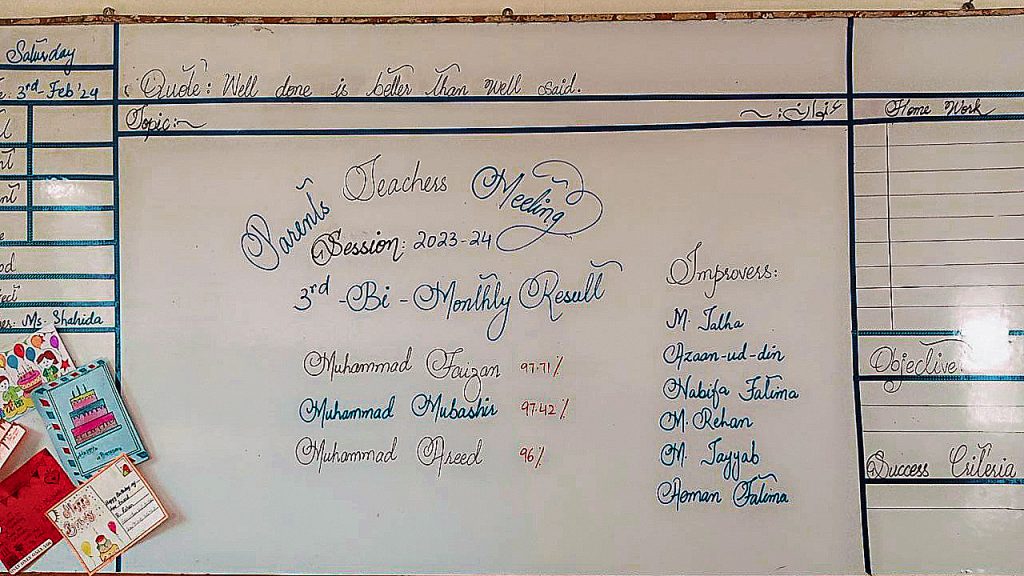 Saturday
3rd Feb'24
Ms. Shahida
Quote: Well done is better than well said.
Topic:
عنوان:
Parents Teachers Meeting
Session: 2023-24
3rd - Bi - Monthly Result
Muhammad Faizan 97.71%
Muhammad Mubashir 97.42%
Muhammad Areed 96%
Improvers:
M. Talha
Azaan-ud-din
Nabifa Fatima
M. Rehan
M. Tayyab
Aoman Fatima
Home Work
Objective
Success Criteria